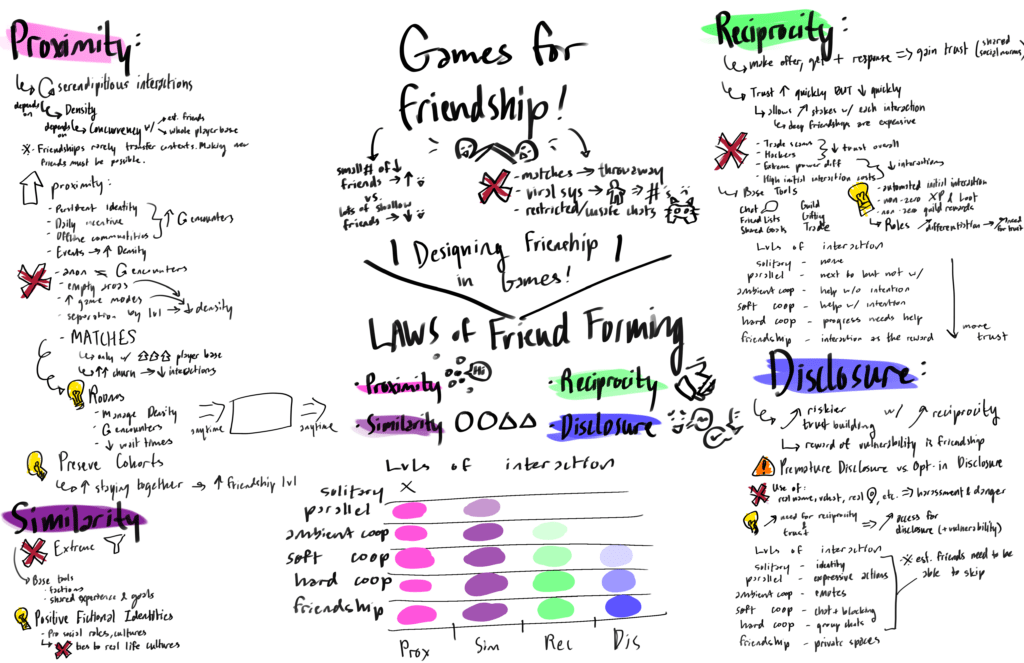 Proximity:
↳ G serendipitious interactions
depends on ↳ Density
depends on ↳ Concurrency w/ → ext. friends
→ whole playerbase
* Friendships rarely transfer contexts. Making new
friends must be possible.
↑ proximity:
- Persistent identity
- Daily incentive
- Offline communities
} ↑ G encounters
- Events → ↑ Density
- anon G encounters
- empty areas
- ↑ game modes
- separation by lvl → ↓ density
- MATCHES
↳ only w/ player base
↳ ↑↑ churn → ↓ interactions
Rooms
- Manage Density
- G encounters
- ↓ wait times
anytime
anytime
Preseve Cohorts
↳ ↑ staying together → ↑ friendship lvl
Similarity
Extreme
↳ Base tools
- factions
- shared experience & goals
Positive Fictional Identities
- Pro social roles, cultures
↳ ties to real life cultures
Games for
friendship!
small # of
friends → ↑
vs.
lots of shallow
friends → ↓
- matches → throwaway
- viral sys → → #'s
- restricted/unsafe chats
Designing Frienship
in Games!
LAWS of Friend Forming
- Proximity
Hi
- Reciprocity
- Similarity
- Disclosure
Lvls of interaction
solitary X
parallel
ambient coop
soft coop
hard coop
friendship
Prox | Sim | Rec | Dis
Reciprocity:
↳ make offer, get + response => gain trust (shared social norms)
↳ Trust ↑ quickly BUT ↓ quickly
↳ allows ↗ stakes w/ each interaction
↳ deep friendships are expensive
- Trade scams
- Hackers
} ↓ trust overall
- Extreme power diff
- High initial interaction costs
} ↓ interactions
↳ Base Tools
Chat
Friend Lists
Shared Goals
Guild
Gifting
Trade
- automated initial interaction
- non-zero XP & Loot
- non-zero guild rewards
↳ Roles ↗ differentiation → ↗ need for trust
Lvls of interaction
solitary - none
parallel - next to but not w/
ambient coop - help w/o intention
soft coop - help w/ intention
hard coop - progress needs help
friendship - interaction as the reward
more
trust
Disclosure:
↳ ↗ riskier
trust building
w/ ↗ reciprocity
↳ reward of vulnerability is friendship
Premature Disclosure vs Opt-in Disclosure
Use of:
real name, robust, real , etc. => harassment & danger
↗ need for reciprocity
& trust
=> ↗ access for
disclosure (+vulnerability)
Lvls of interaction
solitary - identity
parallel - expressive actions
ambient coop - emotes
soft coop - chat + blocking
hard coop - group chats
friendship - private spaces
* est. friends need to be
able to skip